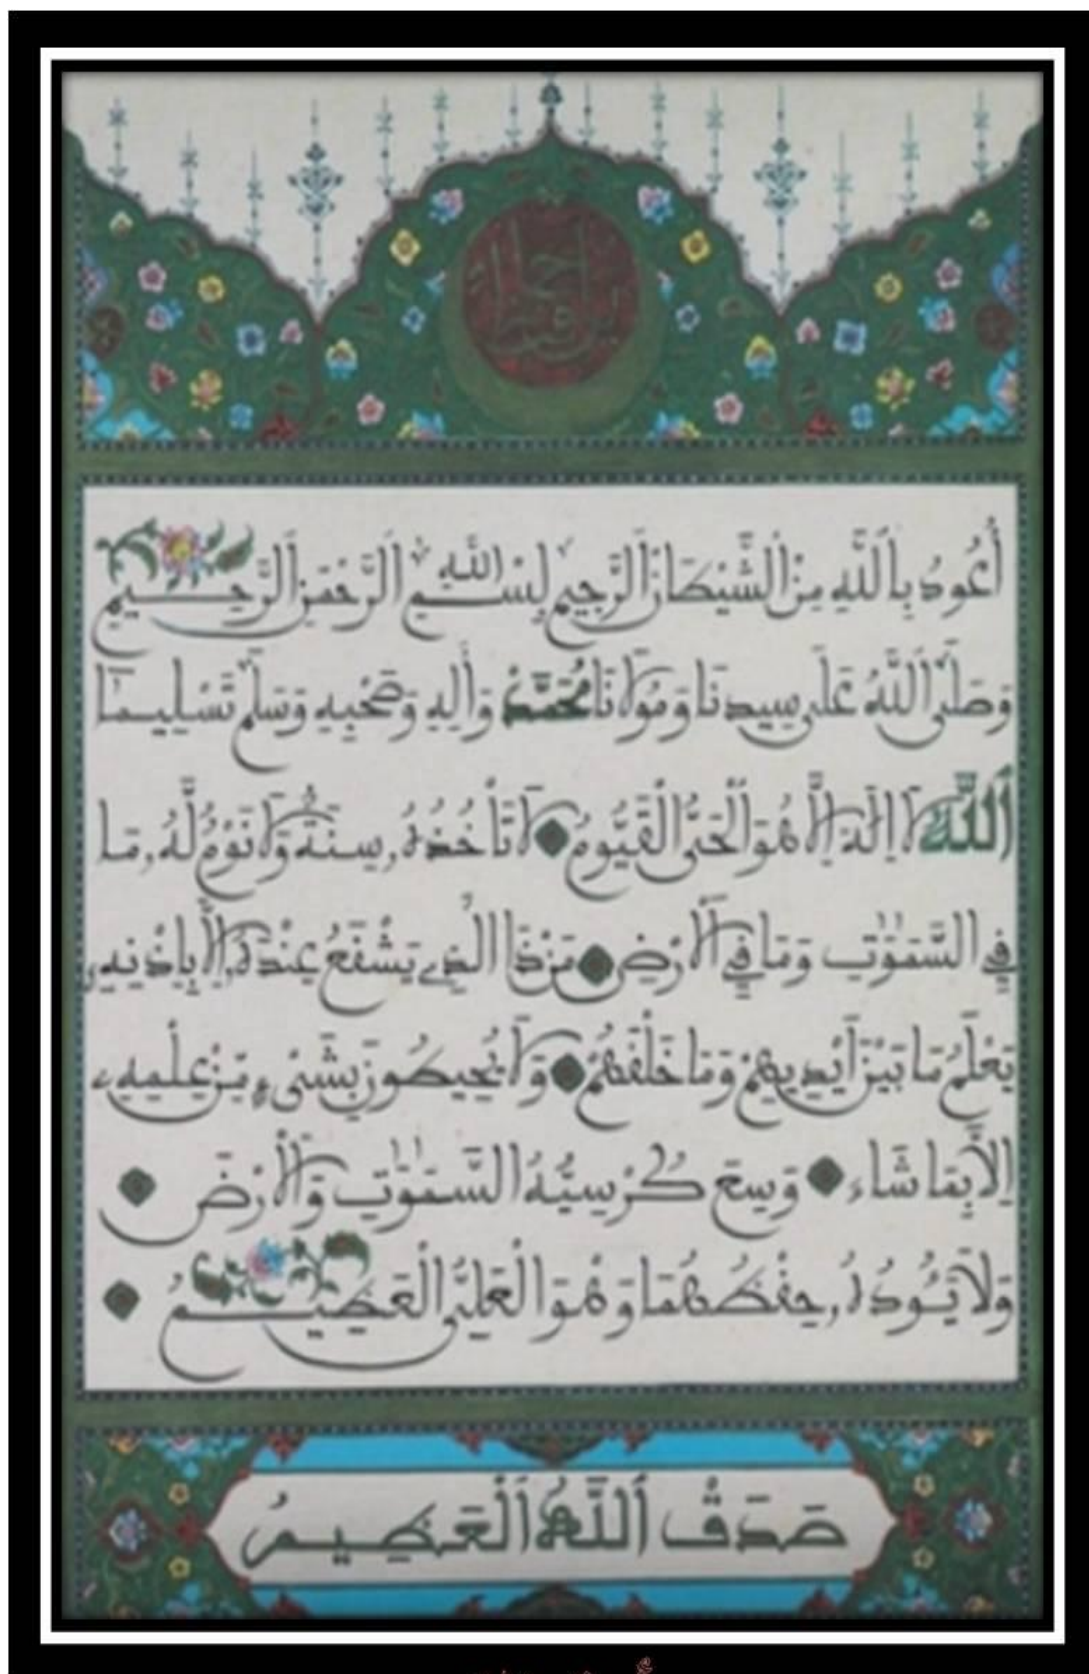 أَعُوذُ بِاللَّهِ مِنَ الشَّيْطَانِ الرَّجِيمِ بِسْمِ اللَّهِ الرَّحْمَنِ الرَّحِيمِ
وَصَلَّى اللَّهُ عَلَى سَيِّدِنَا وَمَوْلَانَا مُحَمَّدٍ وَآلِهِ وَصَحْبِهِ وَسَلِّمْ تَسْلِيمًا
اللَّهُ لَا إِلَهَ إِلَّا هُوَ الْحَيُّ الْقَيُّومُ لَا تَأْخُذُهُ سِنَةٌ وَلَا نَوْمٌ لَّهُ مَا
فِي السَّمَوَاتِ وَمَا فِي الْأَرْضِ مَن ذَا الَّذِي يَشْفَعُ عِنْدَهُ إِلَّا بِإِذْنِهِ
يَعْلَمُ مَا بَيْنَ أَيْدِيهِمْ وَمَا خَلْفَهُمْ وَلَا يُحِيطُونَ بِشَيْءٍ مِّنْ عِلْمِهِ
إِلَّا بِمَا شَاءَ وَسِعَ كُرْسِيُّهُ السَّمَوَاتِ وَالْأَرْضَ
وَلَا يَئُودُهُ حِفْظُهُمَا وَهُوَ الْعَلِيُّ الْعَظِيمُ
صَدَقَ اللَّهُ الْعَظِيمُ